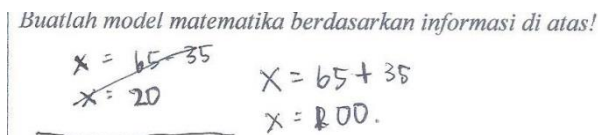 Buatlah model matematika berdasarkan informasi di atas!
x = 65 - 35
x = 20
x = 65 + 35
x = 100.